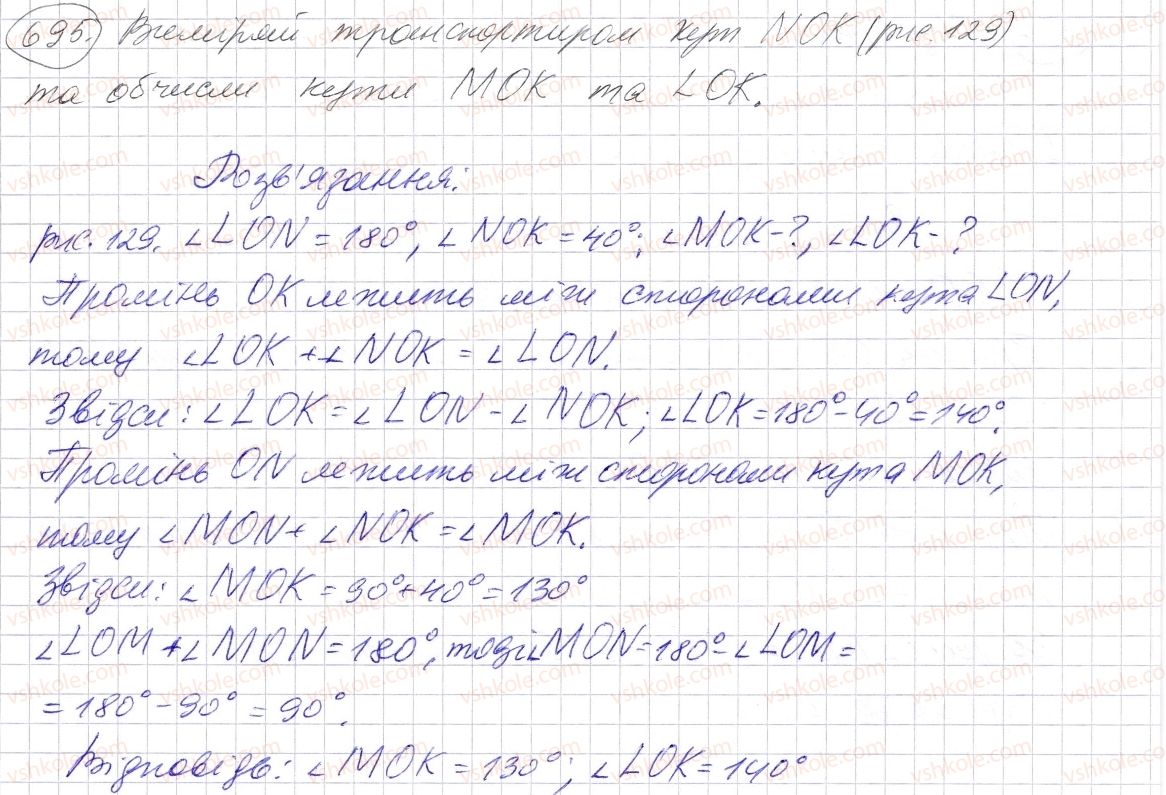 695. Виміряй транспортиром кут NOK (рис. 129)
та обчисли кути MOK та LOK.
Розв'язання:
рис. 129. ∠LON = 180°, ∠NOK = 40°; ∠MOK - ?, ∠LOK - ?
Промінь OK лежить між сторонами кута LON,
тому ∠LOK + ∠NOK = ∠LON.
Звідси: ∠LOK = ∠LON - ∠NOK; ∠LOK = 180° - 40° = 140°.
Промінь ON лежить між сторонами кута MOK,
тому ∠MON + ∠NOK = ∠MOK.
Звідси: ∠MOK = 90° + 40° = 130°
∠LOM + ∠MON = 180°, тоді ∠MON = 180° - ∠LOM =
= 180° - 90° = 90°.
Відповідь: ∠MOK = 130°; ∠LOK = 140°